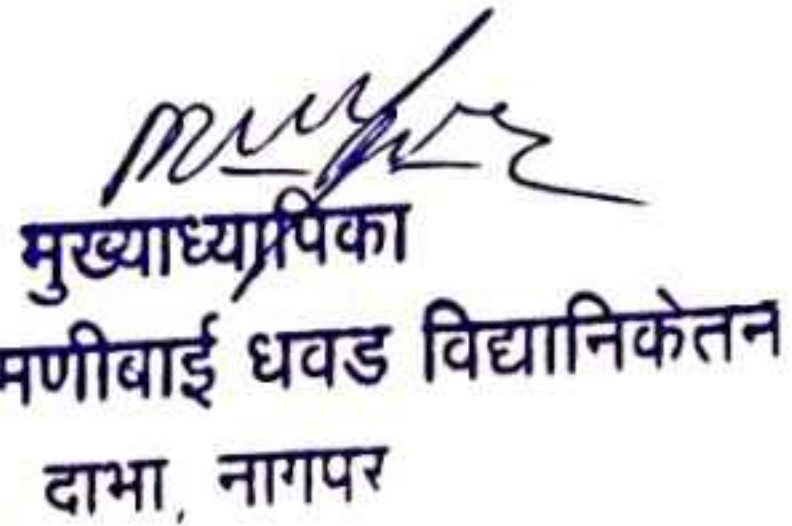 मुख्याध्यापिका
मणीबाई धवड विद्यानिकेतन
दाभा, नागपर